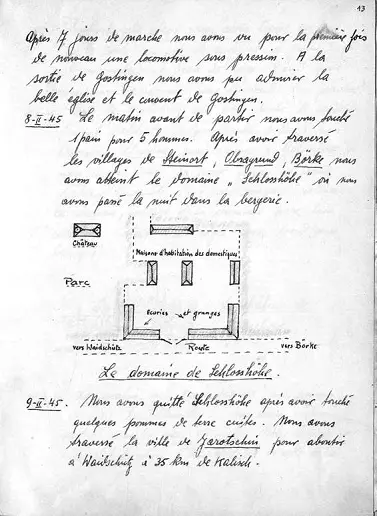 13
Après 7 jours de marche nous avons vu pour la première fois
de nouveau une locomotive sous pression. A la
sortie de Gostingen nous avons pu admirer la
belle église et le couvent de Gostingen.
8-II-45 Le matin avant de partir nous avons touché
1 pain pour 5 hommes. Après avoir traversé
les villages de Steinort, Obragrund, Börke nous
avons atteint le domaine „Schlosshöhe" où nous
avons passé la nuit dans la bergerie.
Château
Maisons d'habitation des domestiques
Parc
Ecuries et granges
vers Waidschütz Route vers Börke
Le domaine de Schlosshöhe.
9-II-45. Nous avons quitté Schlosshöhe après avoir touché
quelques pommes de terre cuites. Nous avons
traversé la ville de Jarotschin pour aboutir
à Waidschütz à 35 km de Kalisch.